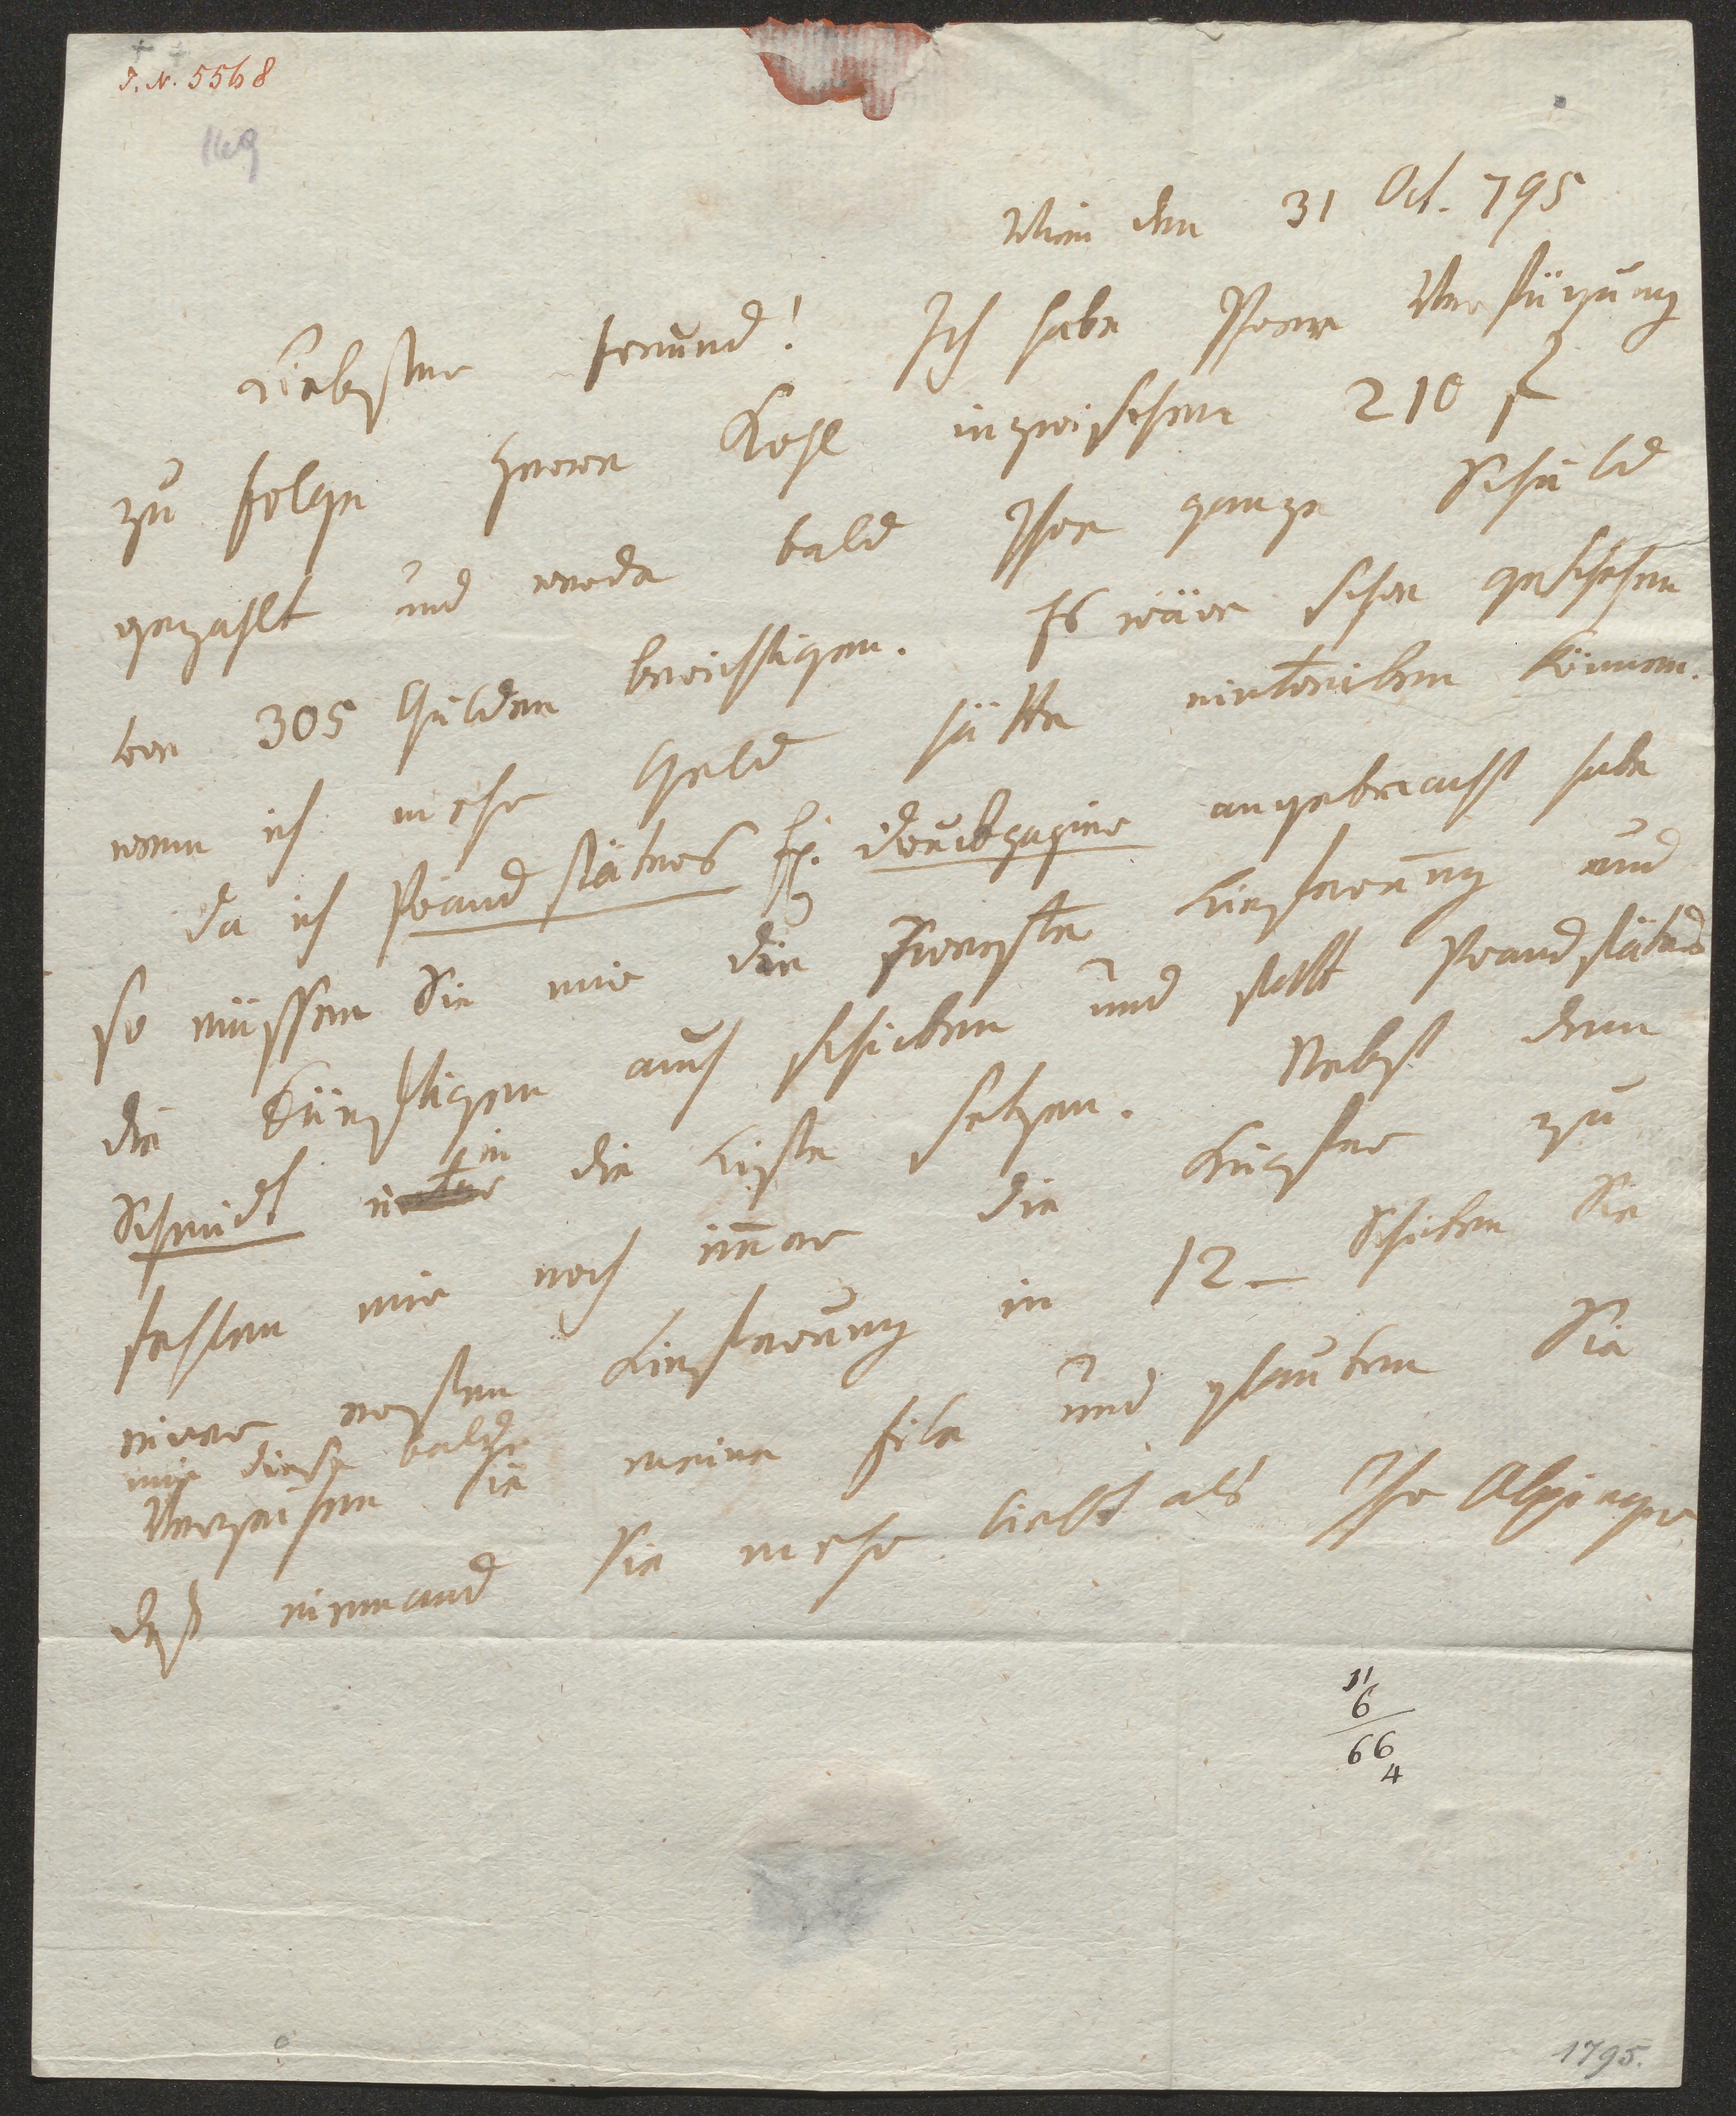 J. N. 5568
169
Wien den 31 Oct. 795
Liebster Freund! Ich habe Ihrer Verfügung
zu folge Herrn Kohl inzwischen 210 f
gezahlt und werde bald Ihre ganze Schuld
von 305 Gulden berichtigen. Es wäre schon geschehen
wenn ich mehr Geld hätte eintreiben können.
Da ich Prandstätters Ex. Druckpapier angebracht habe
so müssen Sie mir die zweyte Lieferung und
die künftigen auch schicken und statt Prandstätter
Schmidt in die Liste setzen. Nebst dem
fehlen mir noch immer die Kupfer zu
einer ersten Lieferung in 12 – Schicken Sie
mir diese balde
Verzeihen Sie meine Eile und glauben Sie
daß niemand Sie mehr liebt als Ihr Alxinger
11
6
66
4
1795.